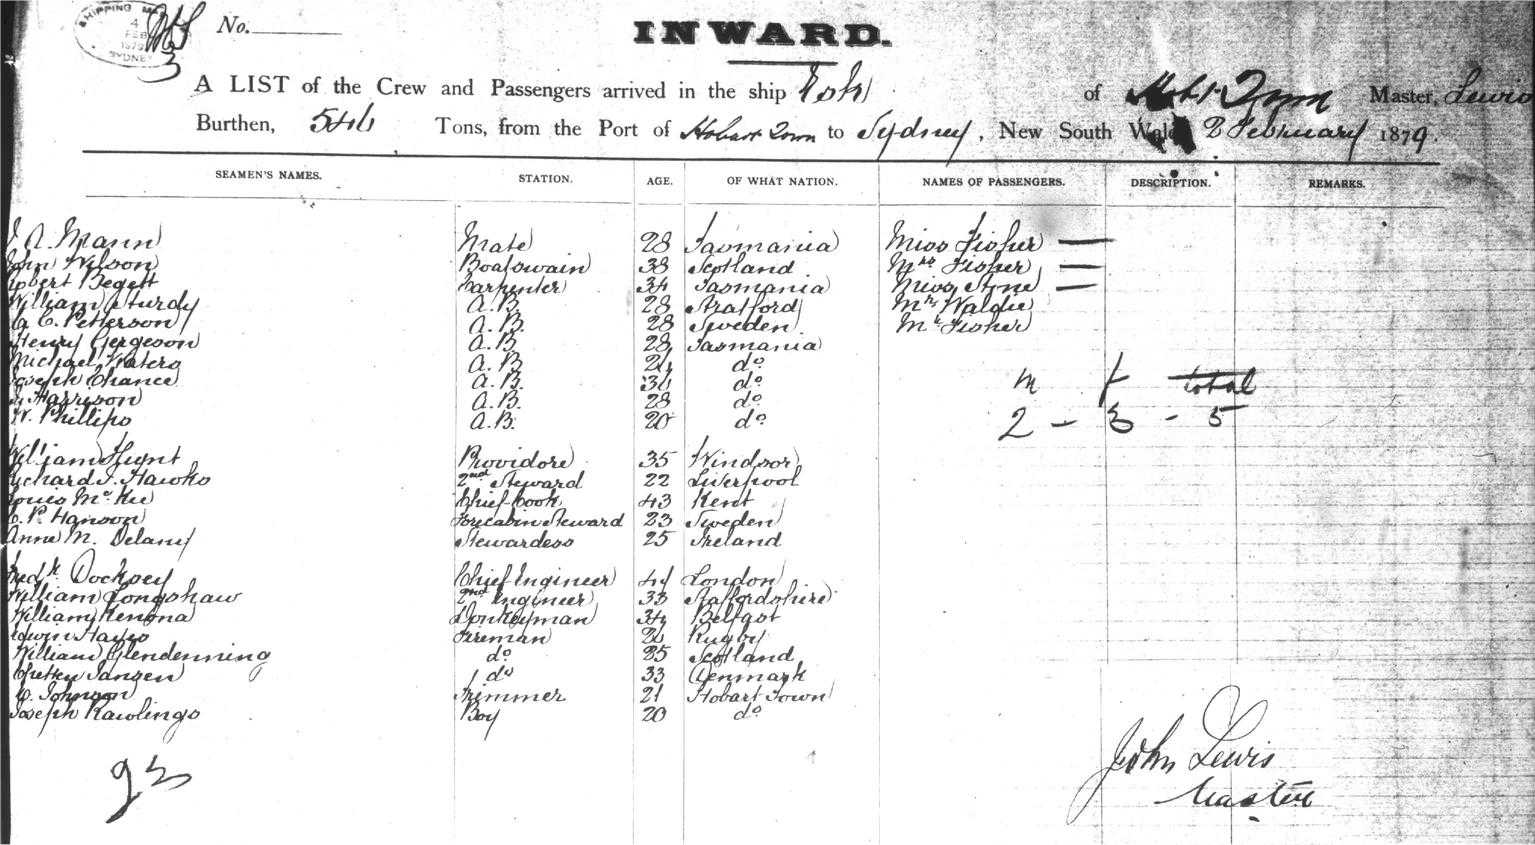 SHIPPING
4
FEB
1879
SYDNEY
No.
INWARD.
A LIST of the Crew and Passengers arrived in the ship Esk of Hobt Town Master, Lewis
Burthen, 546 Tons, from the Port of Hobart Town to Sydney, New South Wales 2 February 1879.
SEAMEN'S NAMES. STATION. AGE. OF WHAT NATION. NAMES OF PASSENGERS. DESCRIPTION. REMARKS.
Mann Mate 28 Tasmania Miss Fisher —
John Wilson Boatswain 38 Scotland Mrs Fisher —
Robert Carpenter 34 Tasmania Miss Stone —
William Sturdy A.B. 28 Stratford Mrs Waldie
C. Petterson A.B. 28 Sweden Mr Fisher
Henry Gergeson A.B 28 Tasmania
Michael Waters A.B. do
Joseph Chance A.B. do
Harrison A.B. 28 do
W. Phillips A.B. 20 do
m f total
2 - 3 - 5
William Hunt Providore 35 Windsor
Richard J. Hawks 2nd Steward 22 Liverpool
Louis McKee Chief Cook 43 Kent
C. P. Hanson Forecabin Steward 23 Sweden
Anne M. Delany Stewardess 25 Ireland
Fredk Docksey Chief Engineer 44 London
William Longshaw 2nd Engineer 33 Staffordshire
William Kenona Donkeyman 34 Belfast
Edwin Hayes Fireman Rugby
William Glendenning do Scotland
Jansen do 33 Denmark
C. Johnson Trimmer 21 Hobart Town
Joseph Rawlings Boy 20 do
23
John Lewis
Master